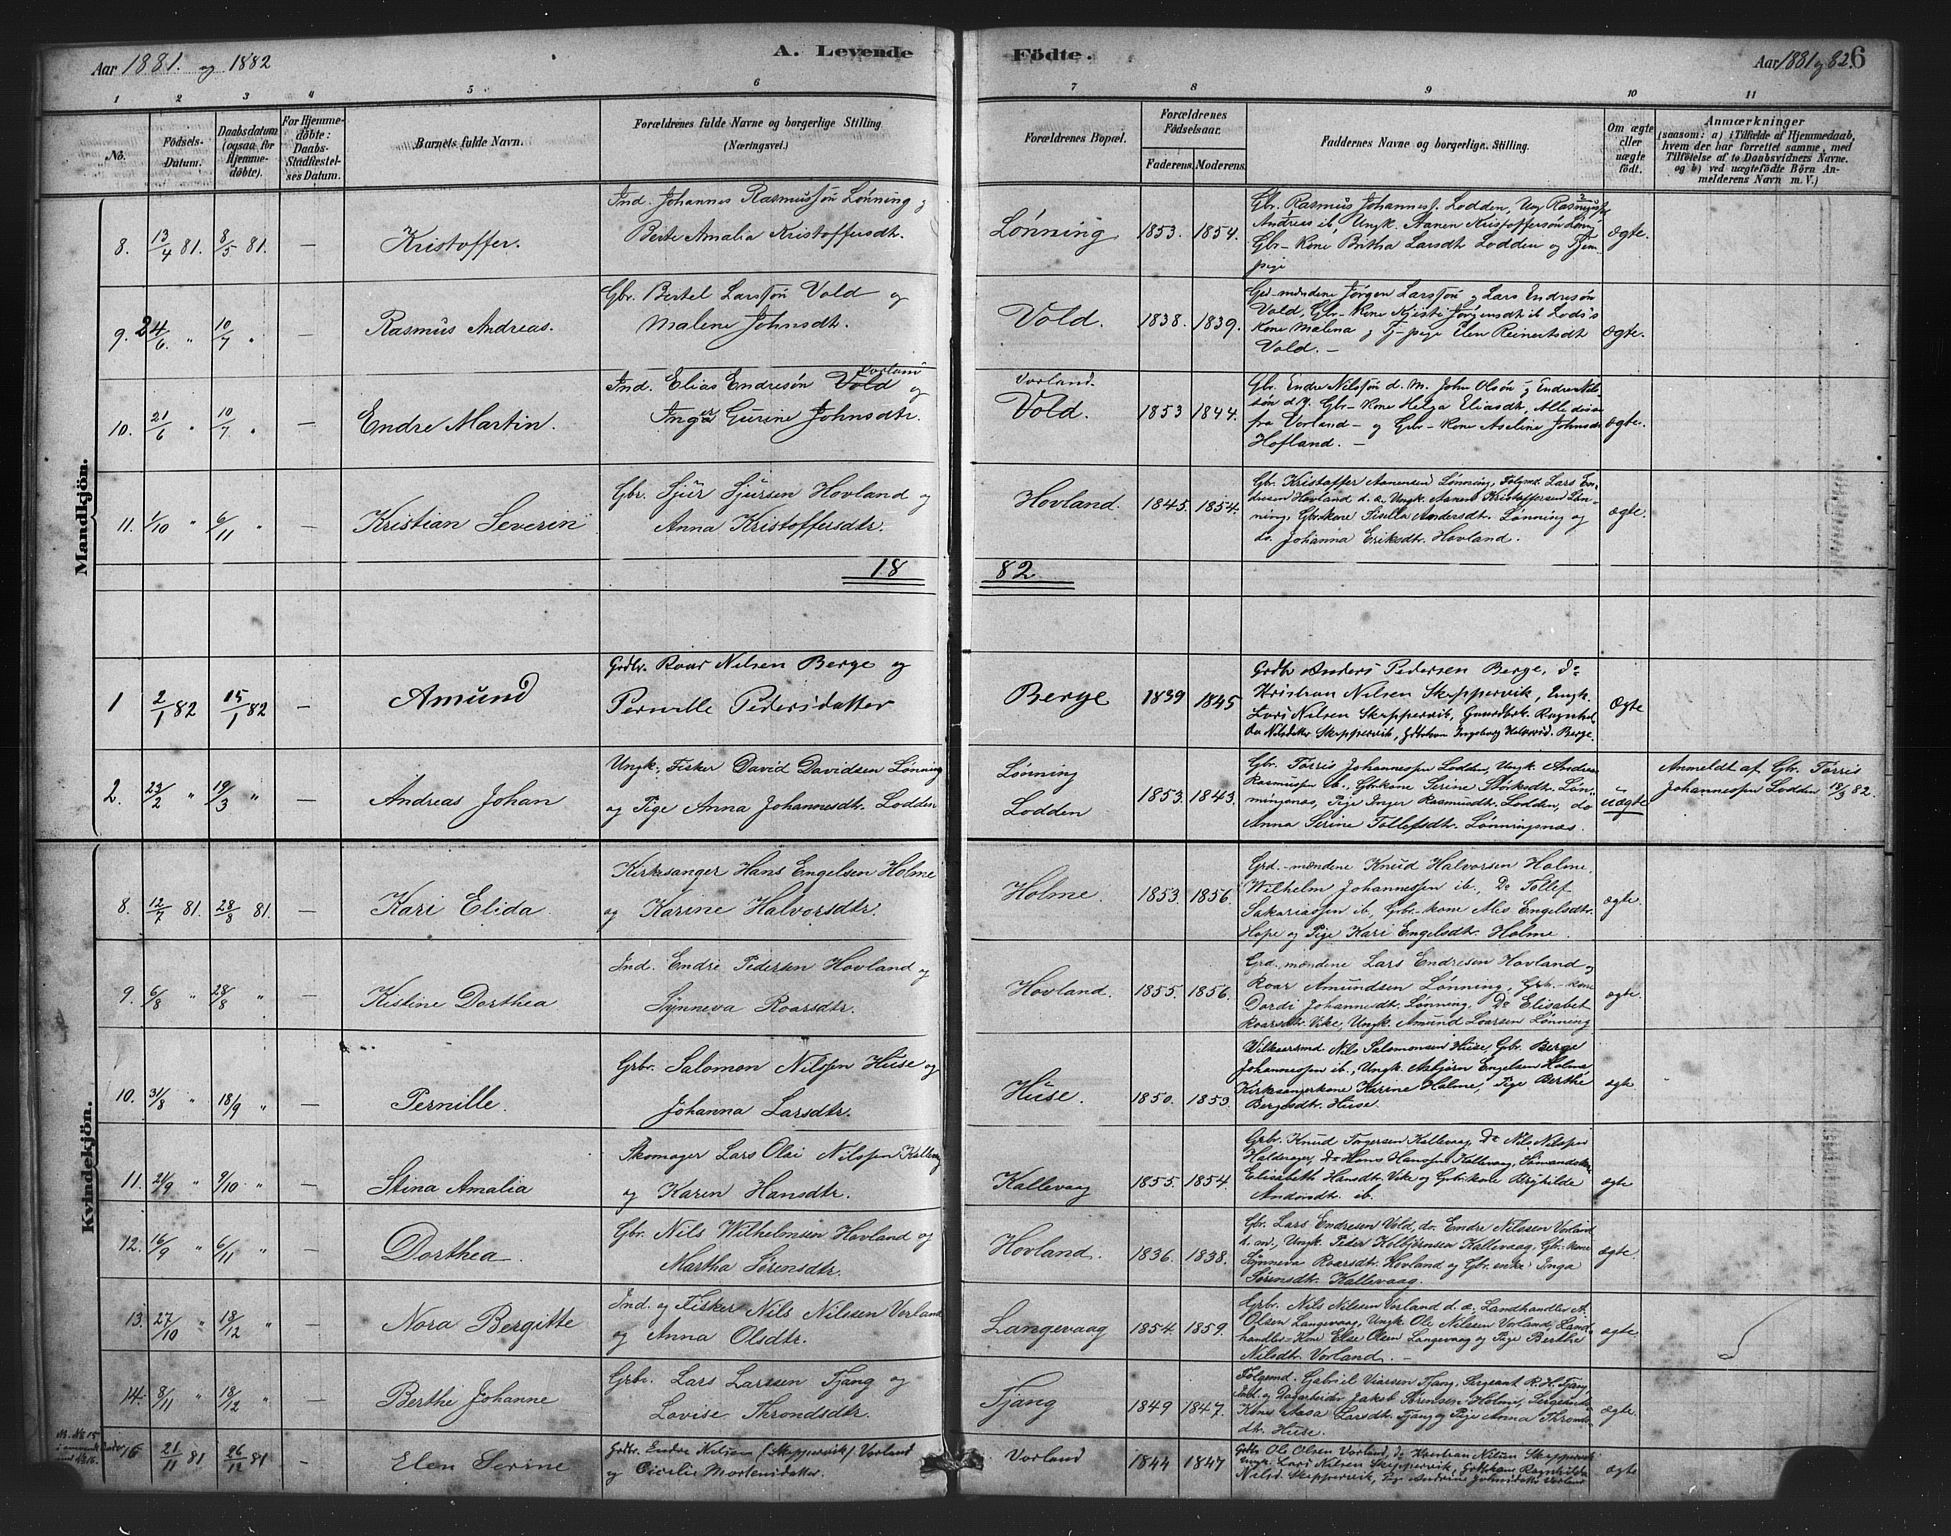 Aar 1881. og 1882
A. Levende Födte.
Aar 1881 og 82. 6
1 2 3 4 5 6 7 8 9 10 11
No.
Födsels-Datum.
Daabsdatum (ogsaa for Hjemme-döbte).
For Hjemme-döbte: Daabs-Stadfæstel-ses Datum.
Barnets fulde Navn.
Forældrenes fulde Navne og borgerlige Stilling (Næringsvei.)
Forældrenes Bopæl.
Forældrenes Födselsaar.
Faderens. Moderens.
Faddernes Navne og borgerlige Stilling.
Om ægte eller uægte födt.
Anmærkninger
(saasom: a) i Tilfælde af Hjemmedaab,
hvem der har forrettet samme, med
Tilföielse af to Daabsvidners Navne.
og b) ved uægtefödte Börn An-
melderens Navn m. V.)
Mandkjön.
8. 13/4 81. 8/5 81. — Kristoffer.
Ind. Johannes Rasmussøn Lønning og
Berte Amalia Kristoffersdt.
Lønning 1853. 1854.
Gbr. Rasmus Johannes. Lodden, Ung
Andreas ib, Ungk. Aanen Kristoffersøn
Gbr-Kone Britha Larsdt Lodden og
pige
ægte.
9. 24/6 " 10/7 " — Rasmus Andreas.
Gbr. Bertel Larssøn Vold og
Malene Johnsdt.
Vold. 1838. 1839.
Grd-mændene Jørgen Larssøn og Lars Endresøn
Vold, Gbr-Kone Jørgensdt ib Lods's
Kone Malena og Tj-pige Elen Reinertsdt
Vold. —
ægte.
10. 21/6 " 10/7 " — Endre Martin.
Ind. Elias Endresøn Vold Vorland og
Inger Gurine Johnsdtr.
Vorland.
Vold. 1853 1844.
Gbr. Endre Nilssøn d. M. John Olsøn og Endre Nils-
søn d.y. Gbr-Kone Helga Eliasdt, Alle disse
fra Vorland — og Gbr-Kone Aseline Johnsdt
Hofland. —
ægte.
11. 1/10 " 6/11 " — Kristian Severin
Gbr. Sjur Sjursen Hovland og
Anna Kristoffersdtr.
Hovland. 1845. 1854.
Gbr. Kristoffer Aanensen Lønning, Følgmd. Lars En-
dresen Hovland d. æ. Ungk. Aanen Kristoffersen Løn-
ning, Gbrkone Sisella Andersdt. Lønning og
do. Johanna Eriksdtr. Hovland.
ægte.
18 82.
1 2/1 82 15/1 82 — Amund
Grdbr. Roar Nilsen Berge og
Pernille Pedersdatter
Berge 1839 1845
Grdb Anders Pedersen Berge, do
Kristian Nilsen Skippervik, Ungk.
Lars Nilsen Skippervik, Gaardbrk. Ragnhil-
da Nilsdatter Skippervik, Ingeborg Berge.
Ægte
2. 23/2 " 19/3 " — Andreas Johan
Ungk., Fisker David Davidsen Lønning
og Pige Anna Johannesdt. Lodden
Lønning
Lodden 1853. 1843.
Gbr. Tørris Johannesen Lodden, Ungk. Andreas
Rasmussen ib., Gbrkone Serine Størksdt. Løn-
ningenæs, Pige Inger Rasmusdt. Lodden, do
Anna Serine Tollefsdt. Lønningsnæs.
uægte
Anmeldt af Gbr. Tørris
Johannessen Lodden 13/3 82.
Kvindekjön.
8. 12/7 81. 28/8 81. — Kari Elida.
Kirkesanger Hans Engelsen Holme
og Karine Halvorsdtr.
Holme. 1853. 1856.
Grd.-mændene Knud Halvorsen Holme,
Wilhelm Johannessen ib., Do Tollef
Sakariassen ib., Gbr-Kone Ales Engelsdtr.
Hope og Pige Kari Engelsdtr. Holme.
ægte.
9. 6/8 " 28/8 " — Kistine Dorthea
Ind. Endre Pedersen Hovland og
Synneva Roarsdtr.
Hovland. 1855. 1856.
Grd.mændene Lars Endresen Hovland og
Roar Amundsen Lønning, Grb.-kone
Dordi Johannesdt. Lønning, Do Elisabet
Roarsdtr. Vike, Ungk. Amund Loarsen Lønning
ægte
10. 31/8 " 18/9 " — Pernille.
Grbr. Salomon Nilssen Huse og
Johanna Larsdtr.
Huse. 1850. 1853.
Vilkaarsmd. Nils Salomonsen Huse, Gbr. Berge
Johannessen ib., Ungk Asbjørn Engelsen Holme,
Kirksangerkone Karine Holme, Pige Berthe
Bergesdtr. Huse.
ægte.
11. 21/9 " 9/10 " — Stina Amalia
Skomager Lars Olai Nilssen Kallevaag
og Karen Hansdtr.
Kallevaag 1855. 1854.
Grbr. Knud Torgersen Kallevaag, Do Nils Nilssen
do Hans Hanssen Kallevaag, Sømandskone
Elisabeth Hansdtr. Vike og Gbrkone Brynhilde
Andersdt ib.
ægte
12. 16/9 " 6/11 " — Dorthea.
Gbr. Nils Wilhelmsen Hovland og
Martha Sørensdtr.
Hovland. 1836. 1838.
Gbr. Lars Endresen Vold, do. Endre Nilssen Vorland
d. m., Ungk. Peder Kolbjørnsen Kallevaag, Gbr. kone
Synneva Roarsdtr. Hovland og Gbr.enke Inga
Sørensdt. Kallevaag.
ægte.
13. 27/10 " 18/12 " Nora Bergitte
Ind. og Fisker Nils Nilssen Vorland
og Anna Olsdtr.
Langevaag 1854. 1859.
Grbr. Nils Nilssen Vorland d. æ., Landhandler A.
Olsen Langevaag, Ungk Ole Nilssen Vorland, Land-
handler-Kone Else Olsen Langevaag og Pige Berthe
Nilsdt. Vorland. —
ægte
14. 8/11 " 18/12 " — Berthe Johanne
Grbr. Lars Larssen Tjang og
Lovise Throndsdtr.
Tjang 1849 1847.
Følgemd. Gabriel Tjang, Sergeant R. H. Tjang,
Ind. og Dagarbeider Jakob Sørensen Holme, Sergeant-
Kone Aasa Larsdt. Tjang og Pige Anna Thronds-
dt. Huse.
ægte.
16 21/11 81 26/12 81 — Elen Serine
Grdbr. Endre Nilsen (Skippervik) Vorland
og Cicilie Mortensdatter.
Vorland 1844 1847
Grdbr Ole Olsen Vorland, do Kristian Nilsen Skippervik
Ungk. Lars Nilsen Skippervik, Ragnhilda
Nilsd. Skippervik, Pige Andrine Johnsdatter Vorland
ægte